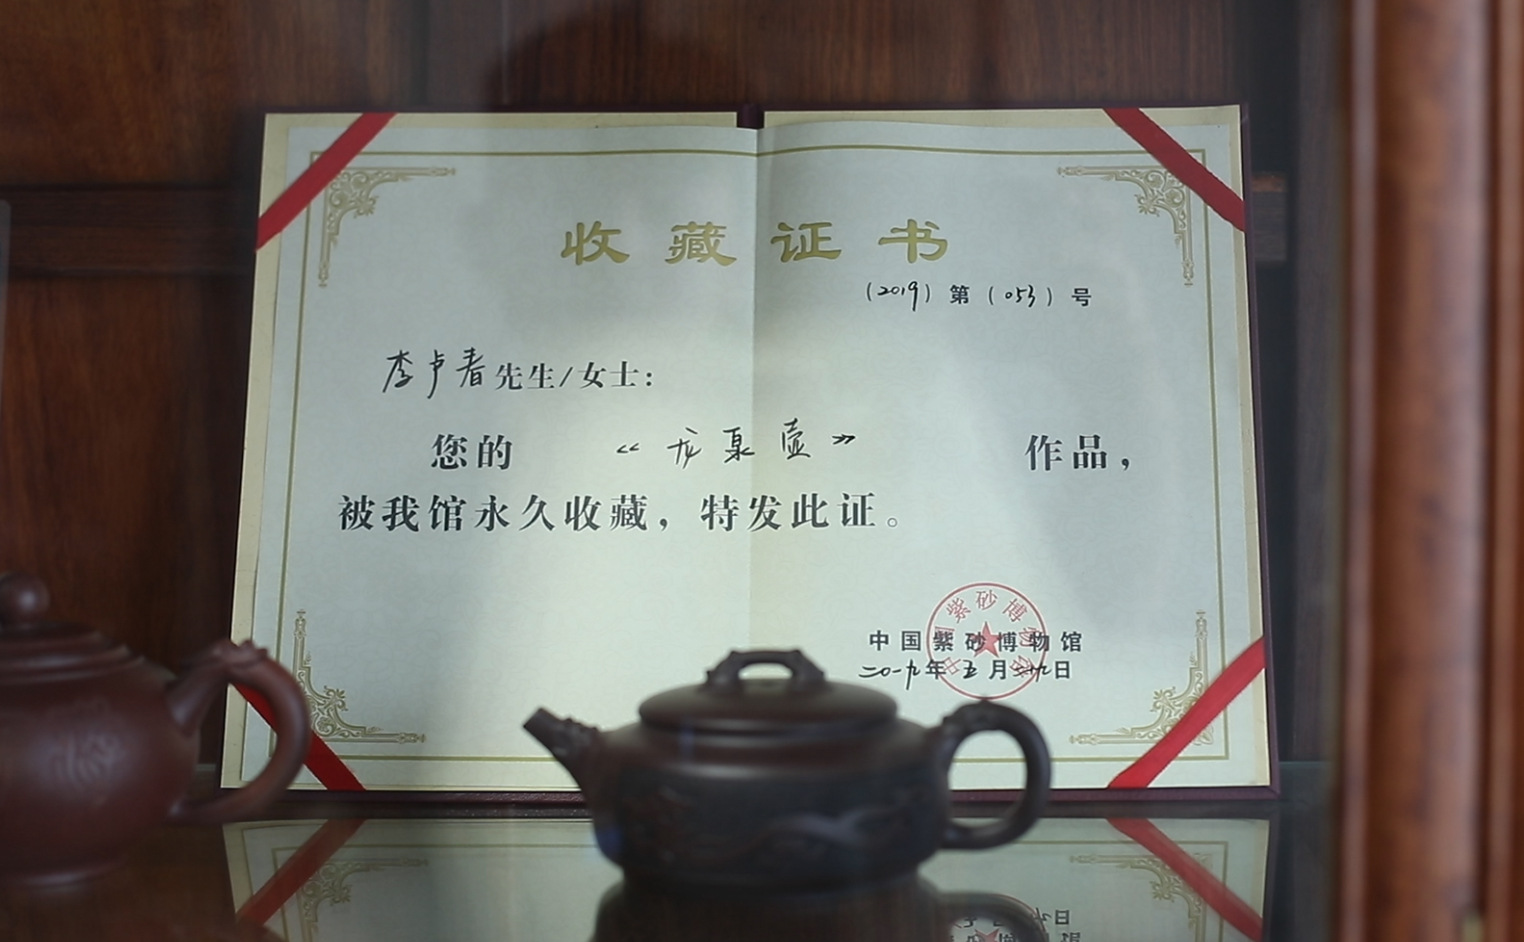 收藏证书
（2019）第（053）号
李卢春先生/女士：
您的 《龙泉壶》 作品，
被我馆永久收藏，特发此证。
中国紫砂博物馆
二〇一九年五月二九日